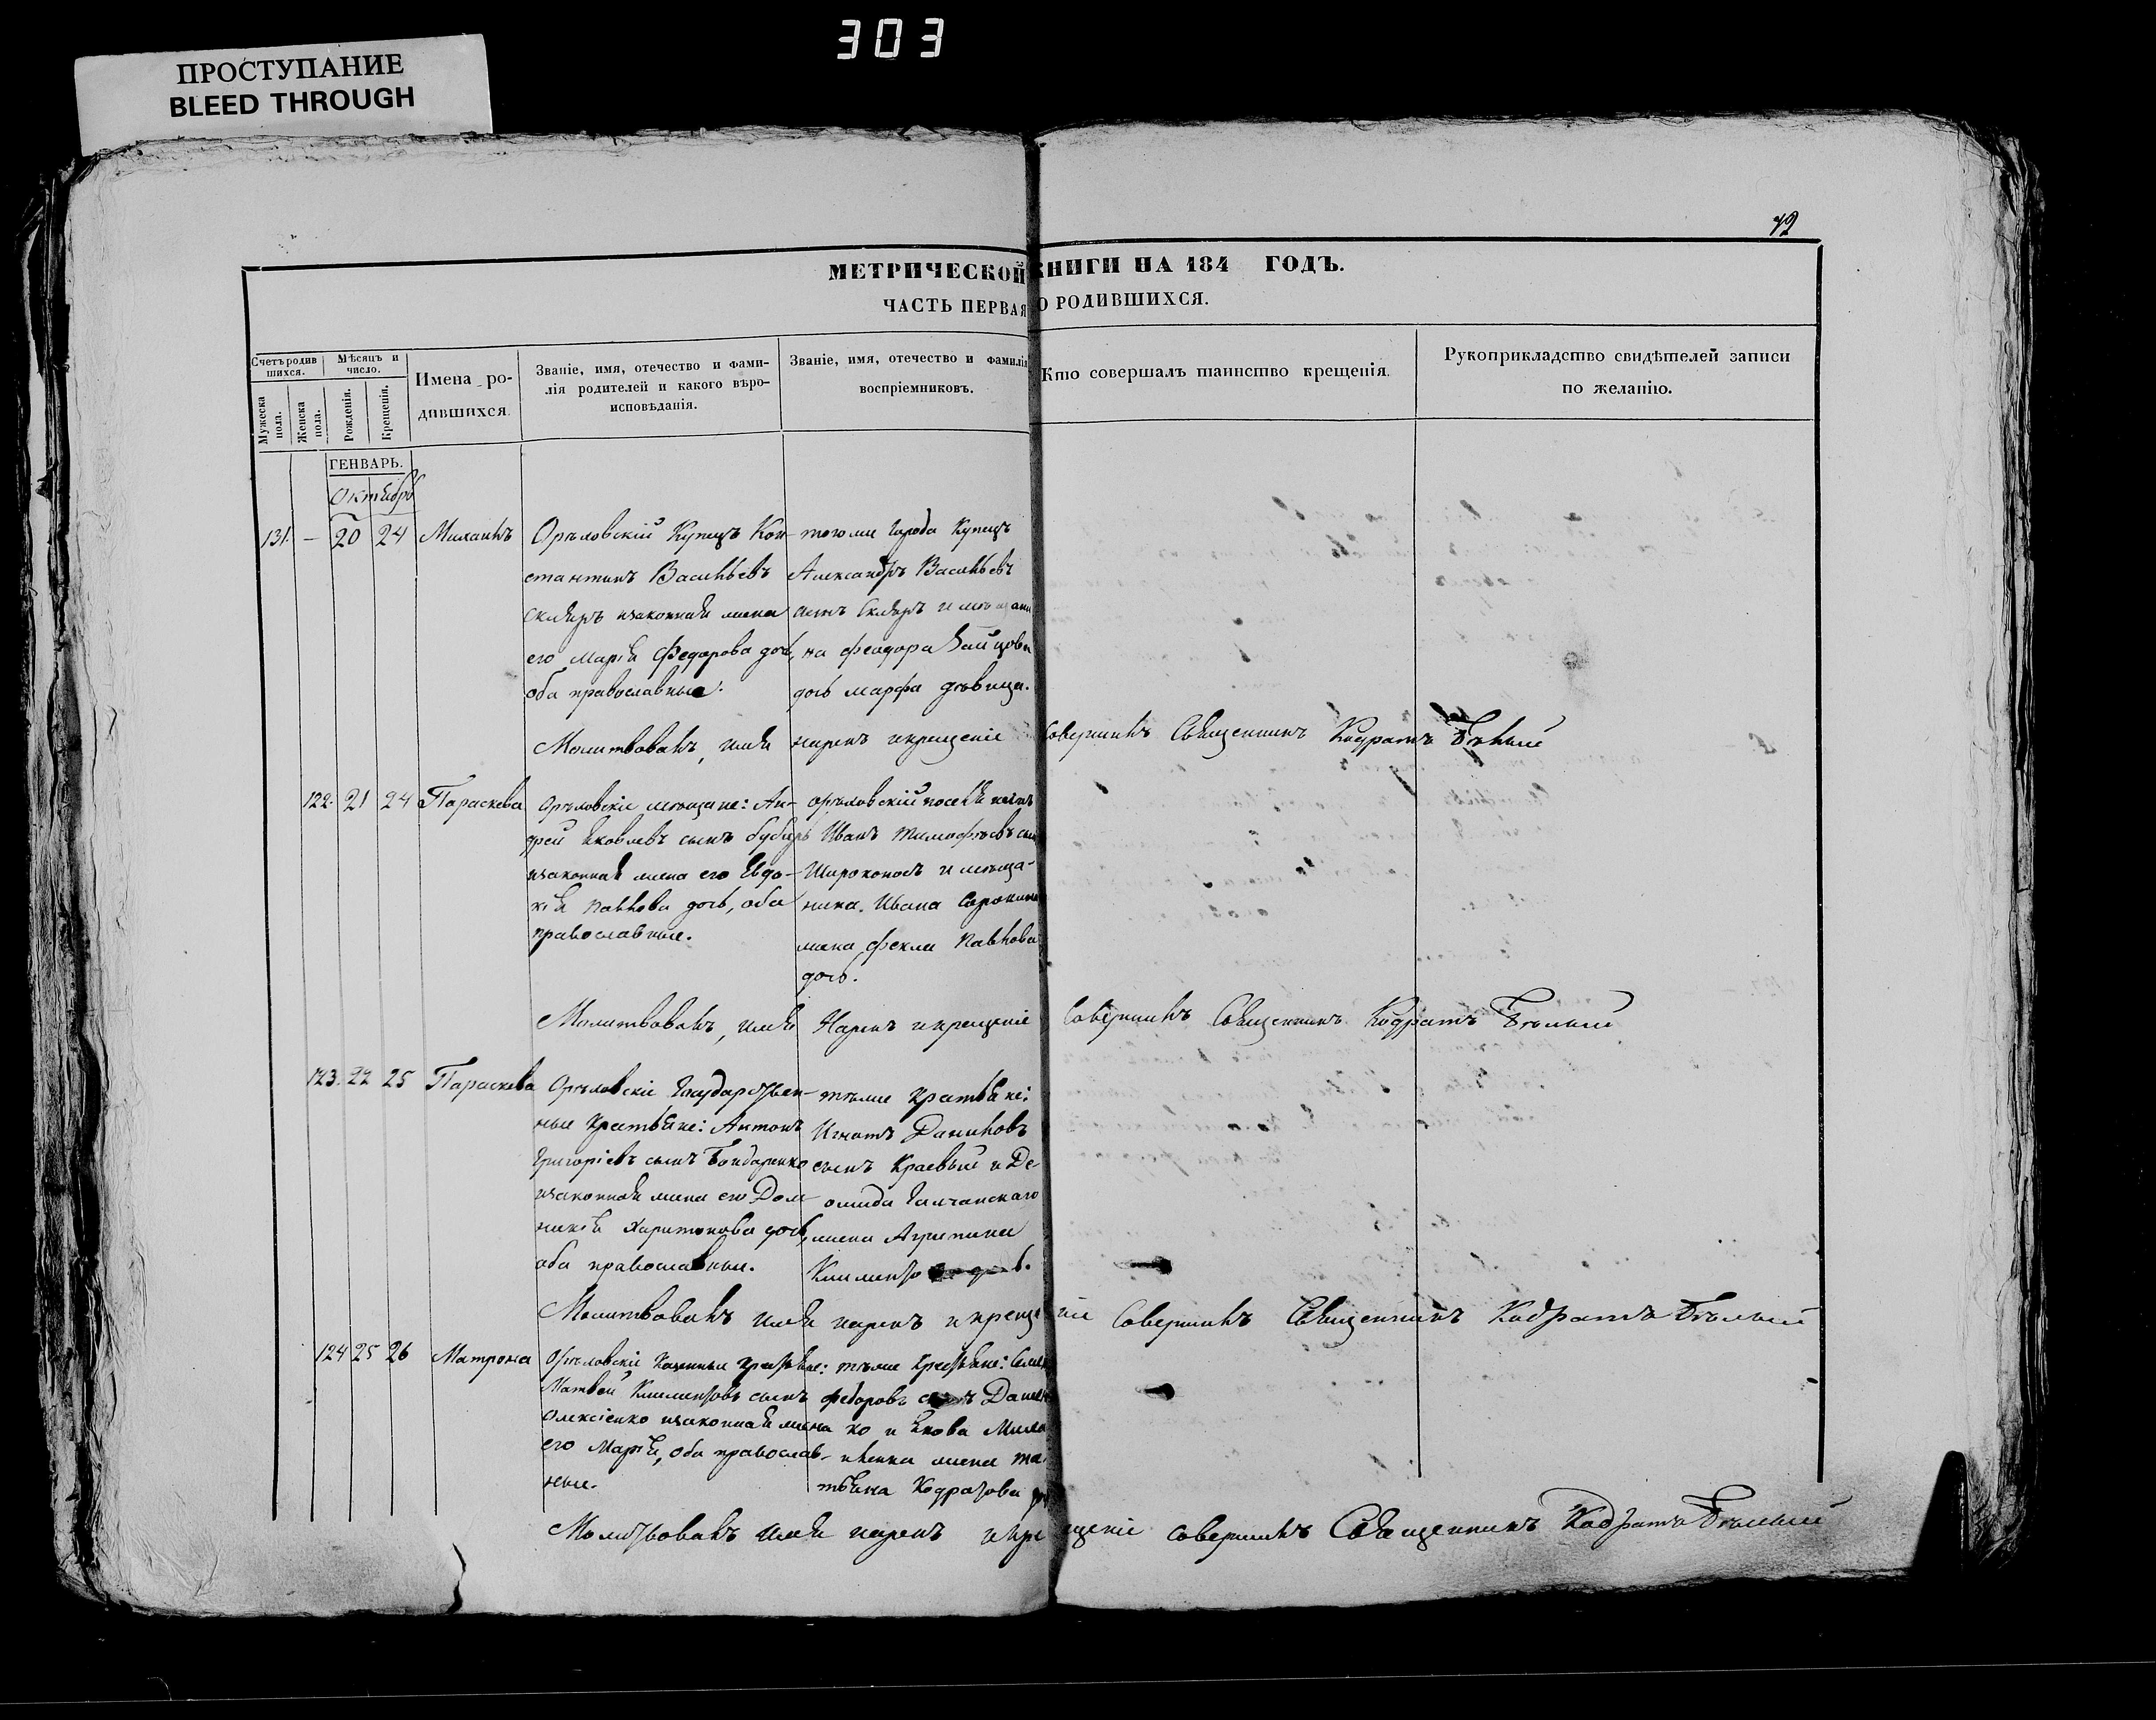 303
ПРОСТУПАНИЕ
BLEED THROUGH
42
МЕТРИЧЕСКОЙ КНИГИ НА 184 ГОДЪ.
ЧАСТЬ ПЕРВАЯ О РОДИВШИХСЯ.
Счетъ родив
шихся.
Мужеска
пола.
Женска
пола.
Мѣсяцъ и
число.
Рожденія.
Крещенія.
Имена ро-
дившихся.
Званіе, имя, отечество и фами-
лія родителей и какого вѣро-
исповѣданія.
Званіе, имя, отечество и фамилія
воспріемниковъ.
Кто совершалъ таинство крещенія.
Рукоприкладство свидѣтелей записи
по желанію.
ГЕНВАРЬ.
Октябрь
131. — 20 24 Михаилъ
Орѣловскій Купецъ Кон-
стантинъ Васильевъ
Скляръ изаконная жена
его Марія Федорова дочь,
оба православные.
тогоже города Купецъ
Александръ Васильевъ
сынъ Скляръ и мѣщани
на Феодора Зайцова
дочь марфа дѣвица.
Молитвовалъ, имя нарекъ и крещеніе совершилъ Священникъ Кодратъ Бѣлый
122. 21 24 Параскева
Орѣловскіе мѣщане: Ан-
дрей Яковлевъ сынъ
изаконная жена его Евдо-
кія Павлова дочь, оба
православные.
орѣловскій поселянинъ
Иванъ Тимофѣевъ сынъ
Широконосъ и мѣща-
нина Ивана Сорокина
жена Фекла Павлова
дочь.
Молитвовалъ, имя Нарекъ и крещеніе Совершилъ Священникъ Кодратъ Бѣлый
123. 22 25 Параскева
Орѣловскіе Государствен-
ные крестьяне: Антонъ
Григоріевъ сынъ Бондаренко
изаконная жена его Дом-
никія Харитонова дочь,
оба православные.
тѣже крестьяне:
Игнатъ Даниловъ
сынъ Краевый и Де-
омида Галчанскаго
жена Агрипина
Молитвовалъ имя нарекъ и крещеніе Совершилъ Священникъ Кодратъ Бѣлый
124 25 26 Матрона
Орѣловскіе Казенные крестьяне:
Матвей Климентовъ сынъ
Олексіенко изаконная жена
его Марія, оба православ-
ные.
тѣже крестьяне:
Федоровъ сынъ
ко и Якова
жена Та-
тіяна Кодратова
Молитвовалъ имя нарекъ и крещеніе совершилъ Священникъ Кодратъ Бѣлый